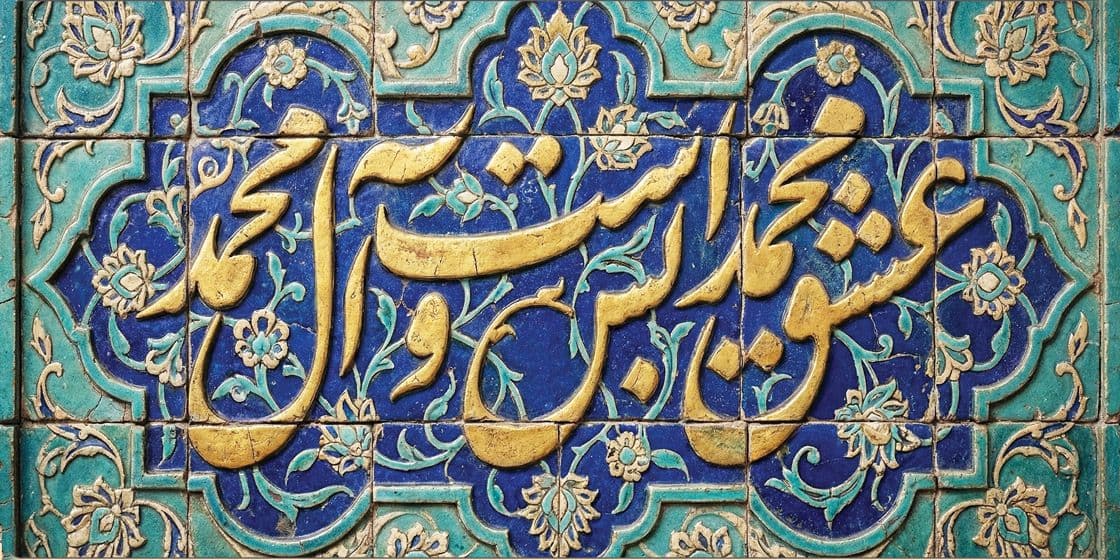 عشق محمد بس است و آل محمد